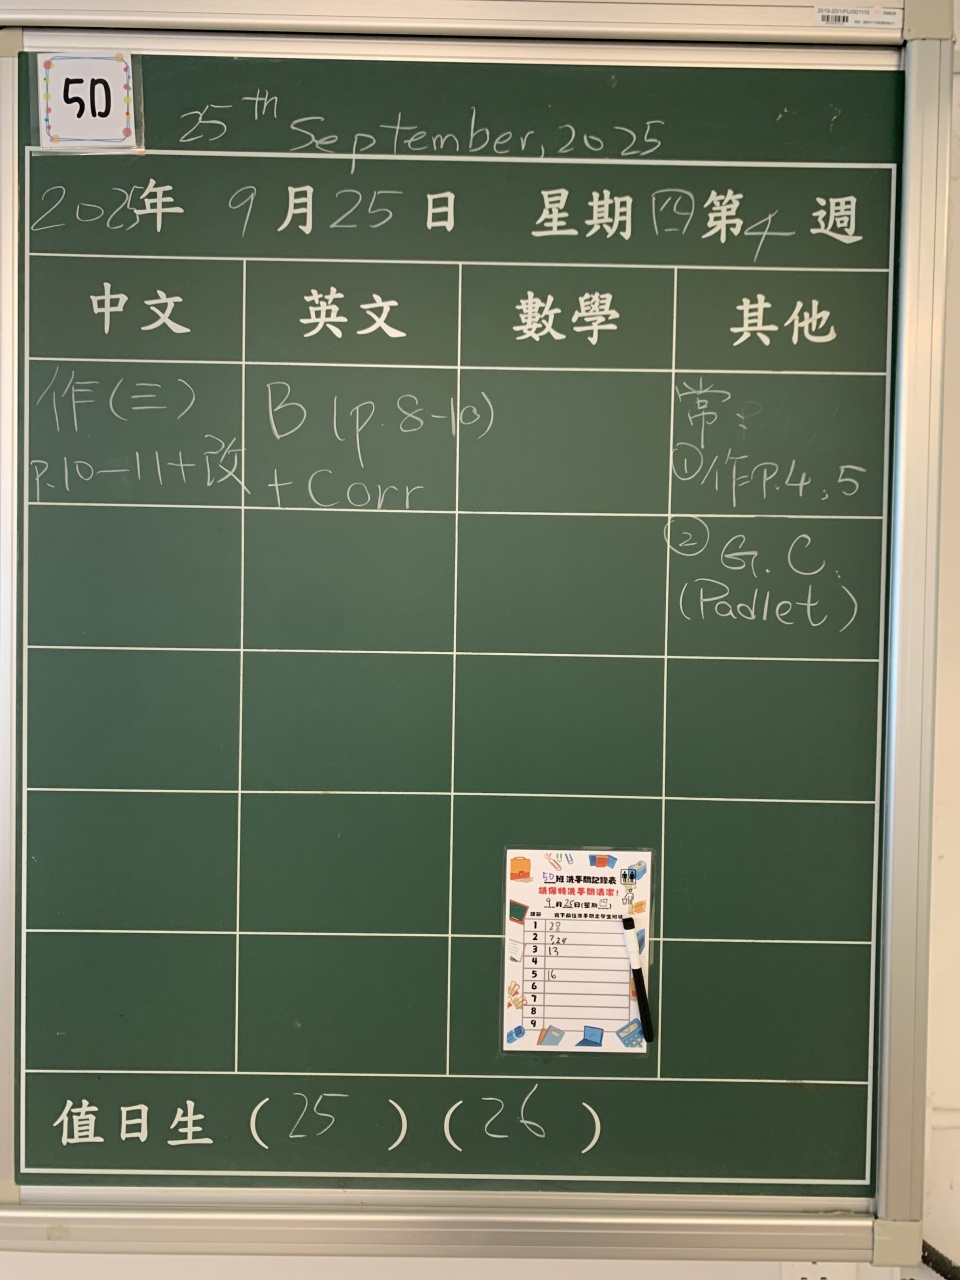 5D
25th September, 2025
2025年 9月25日 星期四第4週
中文 英文 數學 其他
作(三)
p.10-11+改
B (p.8-10)
+ Corr
常:
①作P.4,5
② G.C.
(Padlet)
5D班洗手間記錄表
請保持洗手間清潔!
9月25日(星期四)
1 28
2 7,24
3 13
4
5 16
6
7
8
9
值日生 (25) (26)